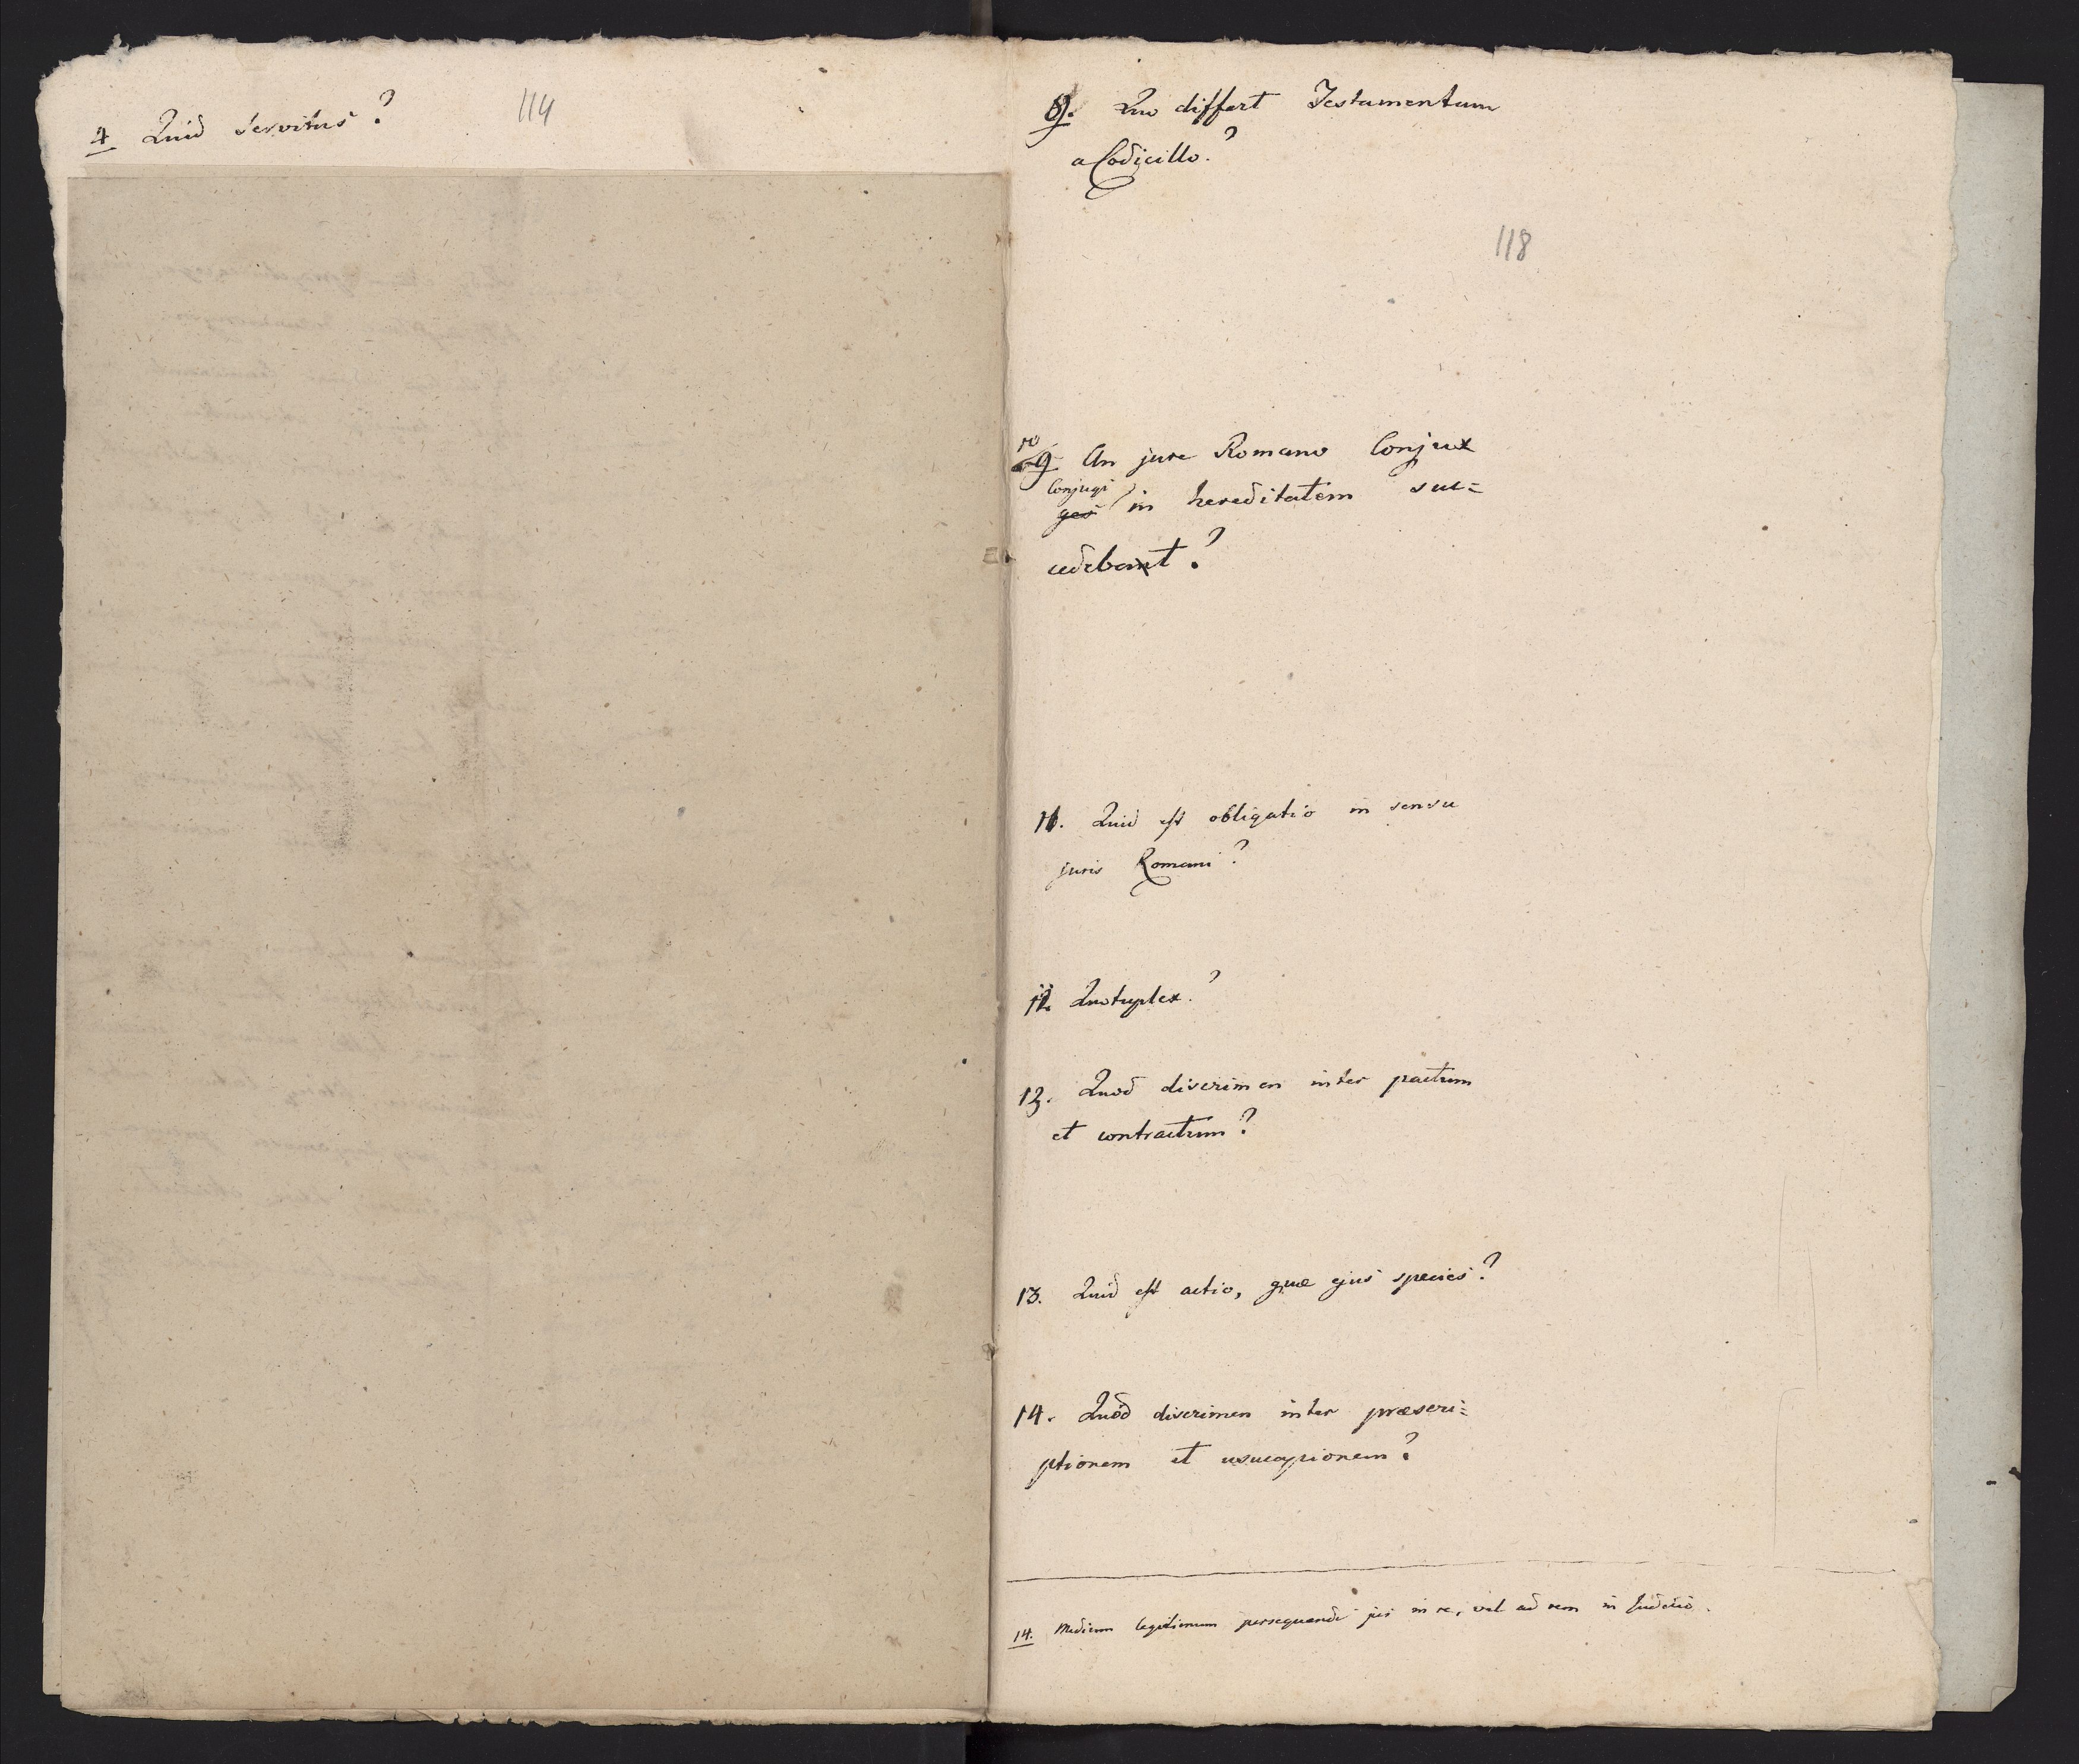 4 Quid servitus?
114
9. Quo differt Testamentum
a Codicillo?
118
10 9 An jure Romano Conjux
Conjugi
ges in hereditatem suc=
cedebant?
11. Quid est obligatio in sensu
juris Romani?
12. Quotuplex?
13. Quod discrimen inter pactum
et contractum?
13. Quid est actio, quæ ejus species?
14. Quod discrimen inter præscri=
ptionem et usucapionem?
14. Medium legitimum persequendi jus in re, vel ad rem in Judicio.